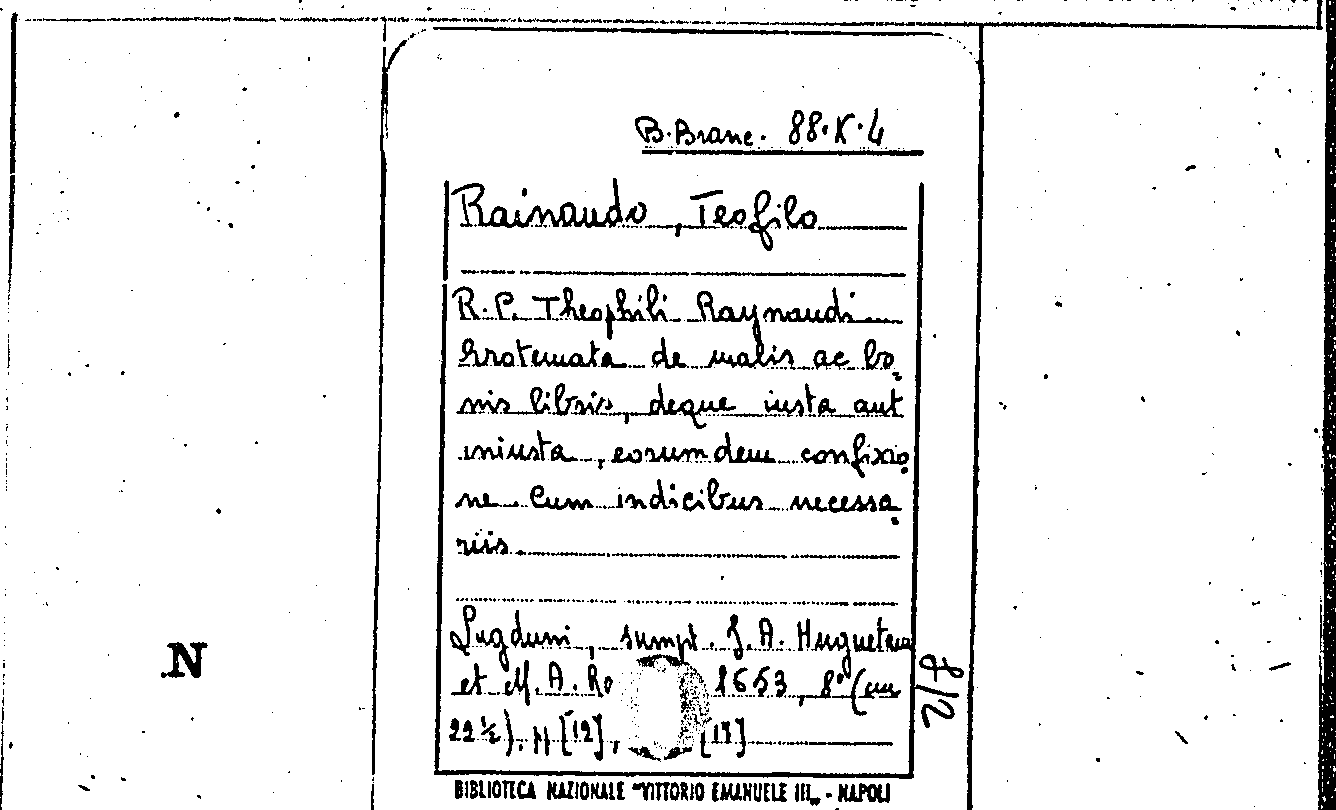 B. Branc. 88.K.4
Rainaudo, Teofilo
R. P. Theophili Raynaudi
Erotemata de malis ac bo=
nis libris, deque iusta aut
iniusta, eorumdem confixio=
ne. Cum indicibus necessa=
riis.
Lugduni, sumpt. J. A. Huguetan
N
et M. A. Ro 1653, 8° (cm
22 ½). pp [12], [17]
8/2
BIBLIOTECA NAZIONALE "VITTORIO EMANUELE III„ - NAPOLI